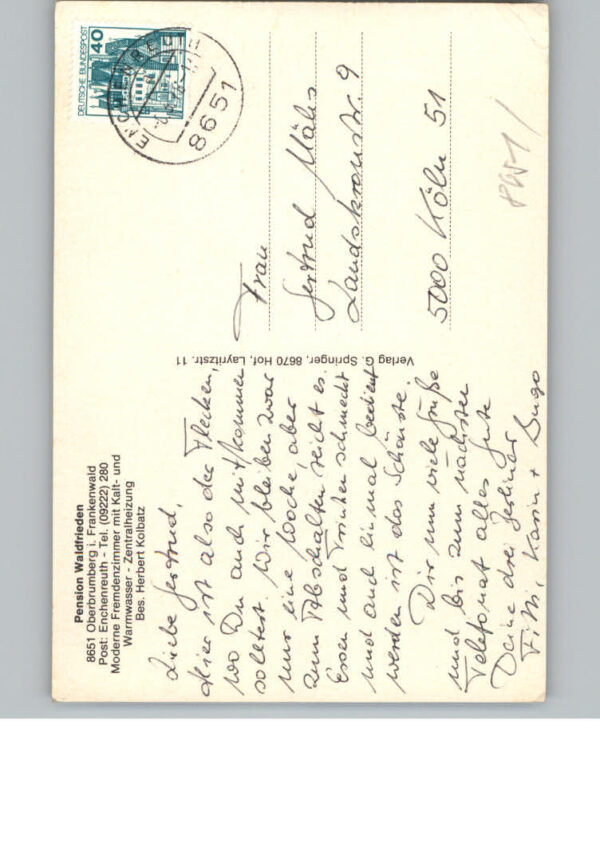 Pension Waldfrieden
8651 Oberbrumberg i. Frankenwald
Post: Enchenreuth - Tel. (09222) 280
Moderne Fremdenzimmer mit Kalt- und
Warmwasser - Zentralheizung
Bes. Herbert Kolbatz
Liebe Gertrud,
Hier ist also der Flecken,
wo Du auch mitkommen
solltest. Wir bleiben zwar
nur eine Woche, aber
zum Abschalten reicht es.
Essen und Trinken schmeckt
und auch einmal bedient
werden ist das Schönste.
Dir nun viele Grüße
und bis zum nächsten
Telefonat alles Gute
Deine drei Berliner
Fitti, Karin + Ingo
Verlag G. Springer, 8670 Hof, Layritzstr. 11
DEUTSCHE BUNDESPOST
40
ENCHENREUTH
8651
Frau
Gertrud Mähs
Landskronstr. 9
5000 Köln 51